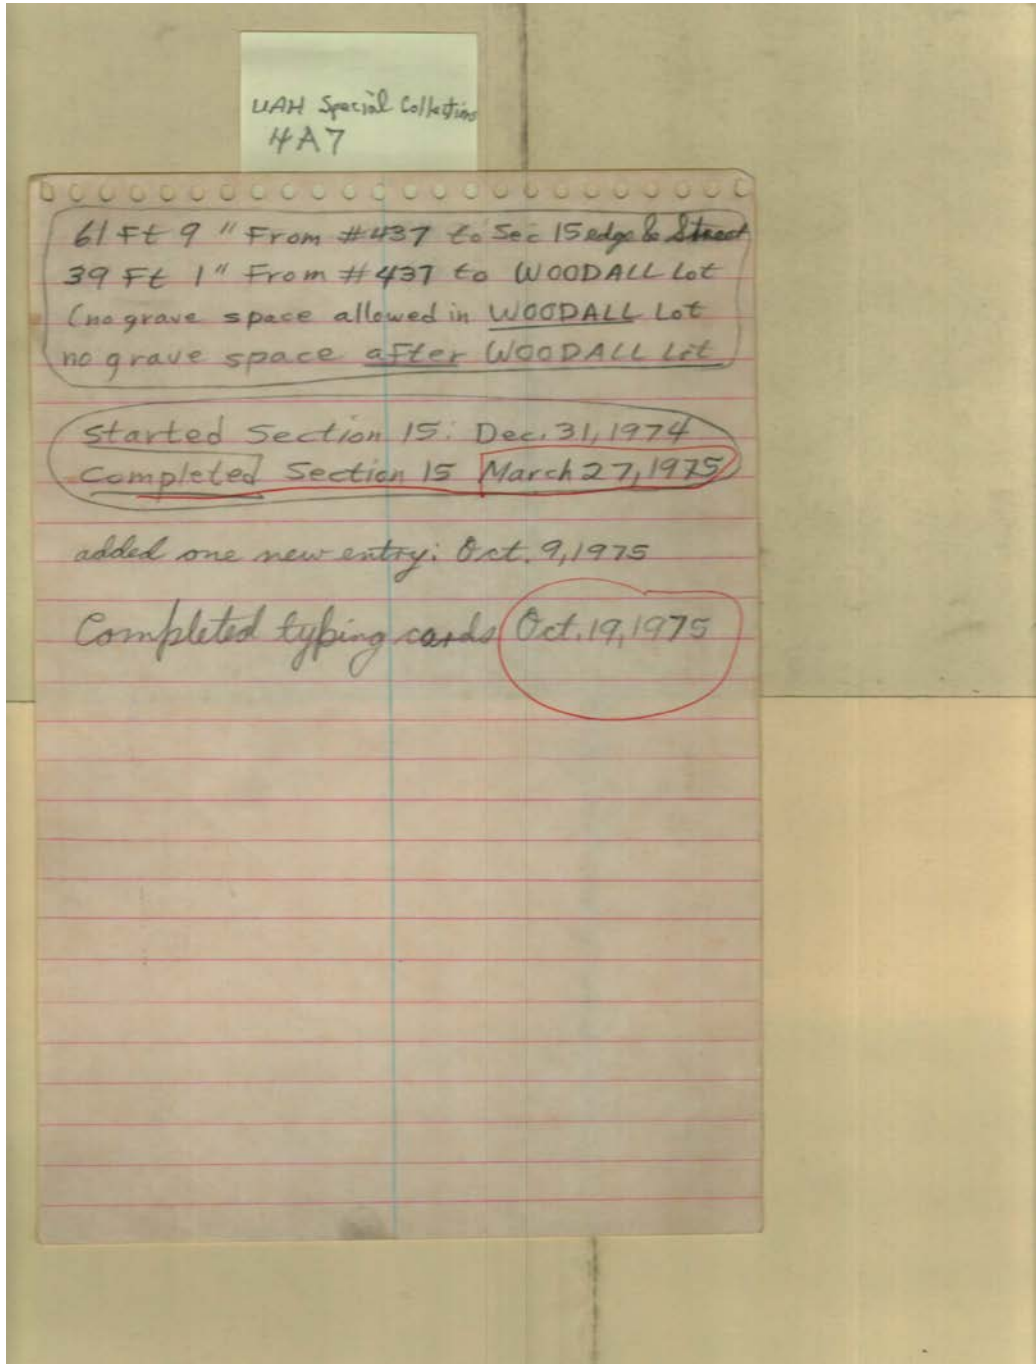 UAH Special Collections
4A7
61 Ft 9 " From #437 to Sec 15 edge & Street
39 Ft 1" From #437 to WOODALL Lot
(no grave space allowed in WOODALL Lot
no grave space after WOODALL Lot
Started Section 15: Dec. 31, 1974
Completed Section 15 March 27, 1975
added one new entry: Oct. 9, 1975
Completed typing cards Oct. 19, 1975